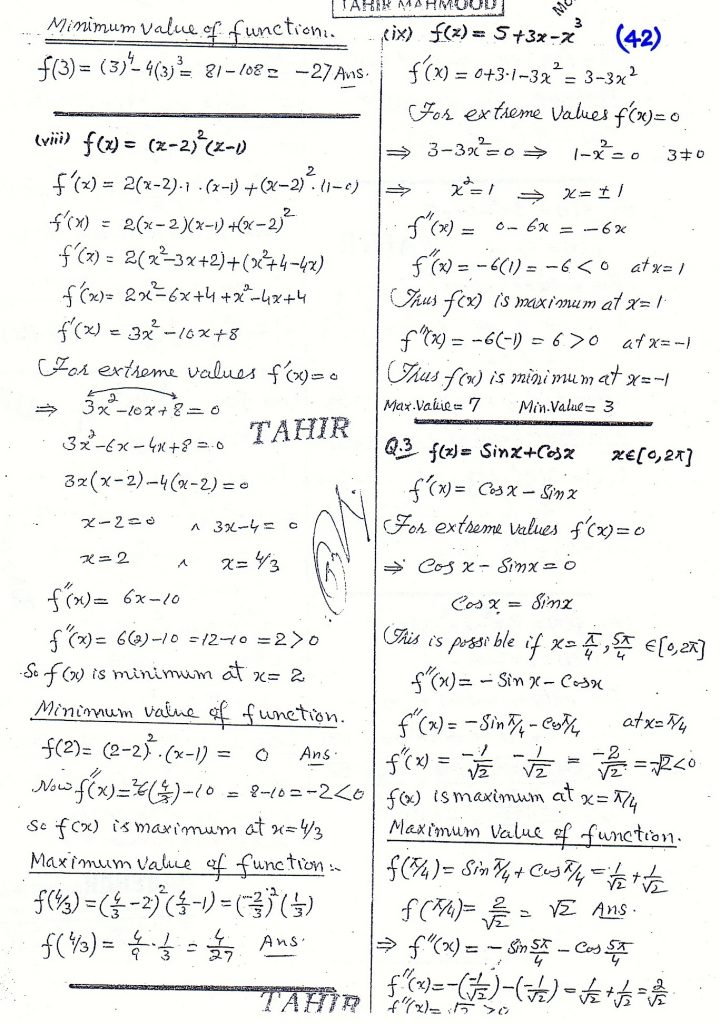 TAHIR MAHMOOD
Minimum value of function:.
f(3) = (3)⁴ - 4(3)³ = 81 - 108 = -27 Ans.
(viii) f(x) = (x-2)²(x-1)
f'(x) = 2(x-2)·1·(x-1) + (x-2)²·(1-0)
f'(x) = 2(x-2)(x-1) + (x-2)²
f'(x) = 2(x²-3x+2) + (x²+4-4x)
f'(x) = 2x²-6x+4+x²-4x+4
f'(x) = 3x²-10x+8
For extreme values f'(x)=0
⇒ 3x²-10x+8 = 0
3x²-6x-4x+8 = 0
TAHIR
3x(x-2)-4(x-2) = 0
x-2 = 0 ∧ 3x-4 = 0
x = 2 ∧ x = 4/3
f''(x) = 6x-10
f''(x) = 6(2)-10 = 12-10 = 2 > 0
So f(x) is minimum at x = 2
Minimum value of function.
f(2) = (2-2)²·(x-1) = 0 Ans.
Now f''(x) = 6(4/3)-10 = 8-10 = -2 < 0
So f(x) is maximum at x = 4/3
Maximum value of function:-
f(4/3) = (4/3-2)²(4/3-1) = (-2/3)²(1/3)
f(4/3) = 4/9·1/3 = 4/27 Ans.
TAHIR
(ix) f(x) = 5+3x-x³ (42)
f'(x) = 0+3·1-3x² = 3-3x²
For extreme values f'(x)=0
⇒ 3-3x²=0 ⇒ 1-x²=0 3≠0
⇒ x²=1 ⇒ x=±1
f''(x) = 0-6x = -6x
f''(x) = -6(1) = -6 < 0 at x=1
Thus f(x) is maximum at x=1
f''(x) = -6(-1) = 6 > 0 at x=-1
Thus f(x) is minimum at x=-1
Max.Value = 7 Min.Value = 3
Q.3 f(x) = Sinx+Cosx x∈[0,2π]
f'(x) = Cosx - Sinx
For extreme values f'(x)=0
⇒ Cos x - Sinx = 0
Cos x = Sinx
This is possible if x = π/4, 5π/4 ∈[0,2π]
f''(x) = -Sin x - Cosx
f''(x) = -Sin π/4 - Cos π/4 at x=π/4
f''(x) = -1/√2 -1/√2 = -2/√2 = -√2 < 0
f(x) is maximum at x = π/4
Maximum value of function.
f(π/4) = Sin π/4 + Cos π/4 = 1/√2 + 1/√2
f(π/4) = 2/√2 = √2 Ans.
⇒ f''(x) = -Sin 5π/4 - Cos 5π/4
f''(x) = -(-1/√2) - (-1/√2) = 1/√2 + 1/√2 = 2/√2
f''(x) = √2 > 0